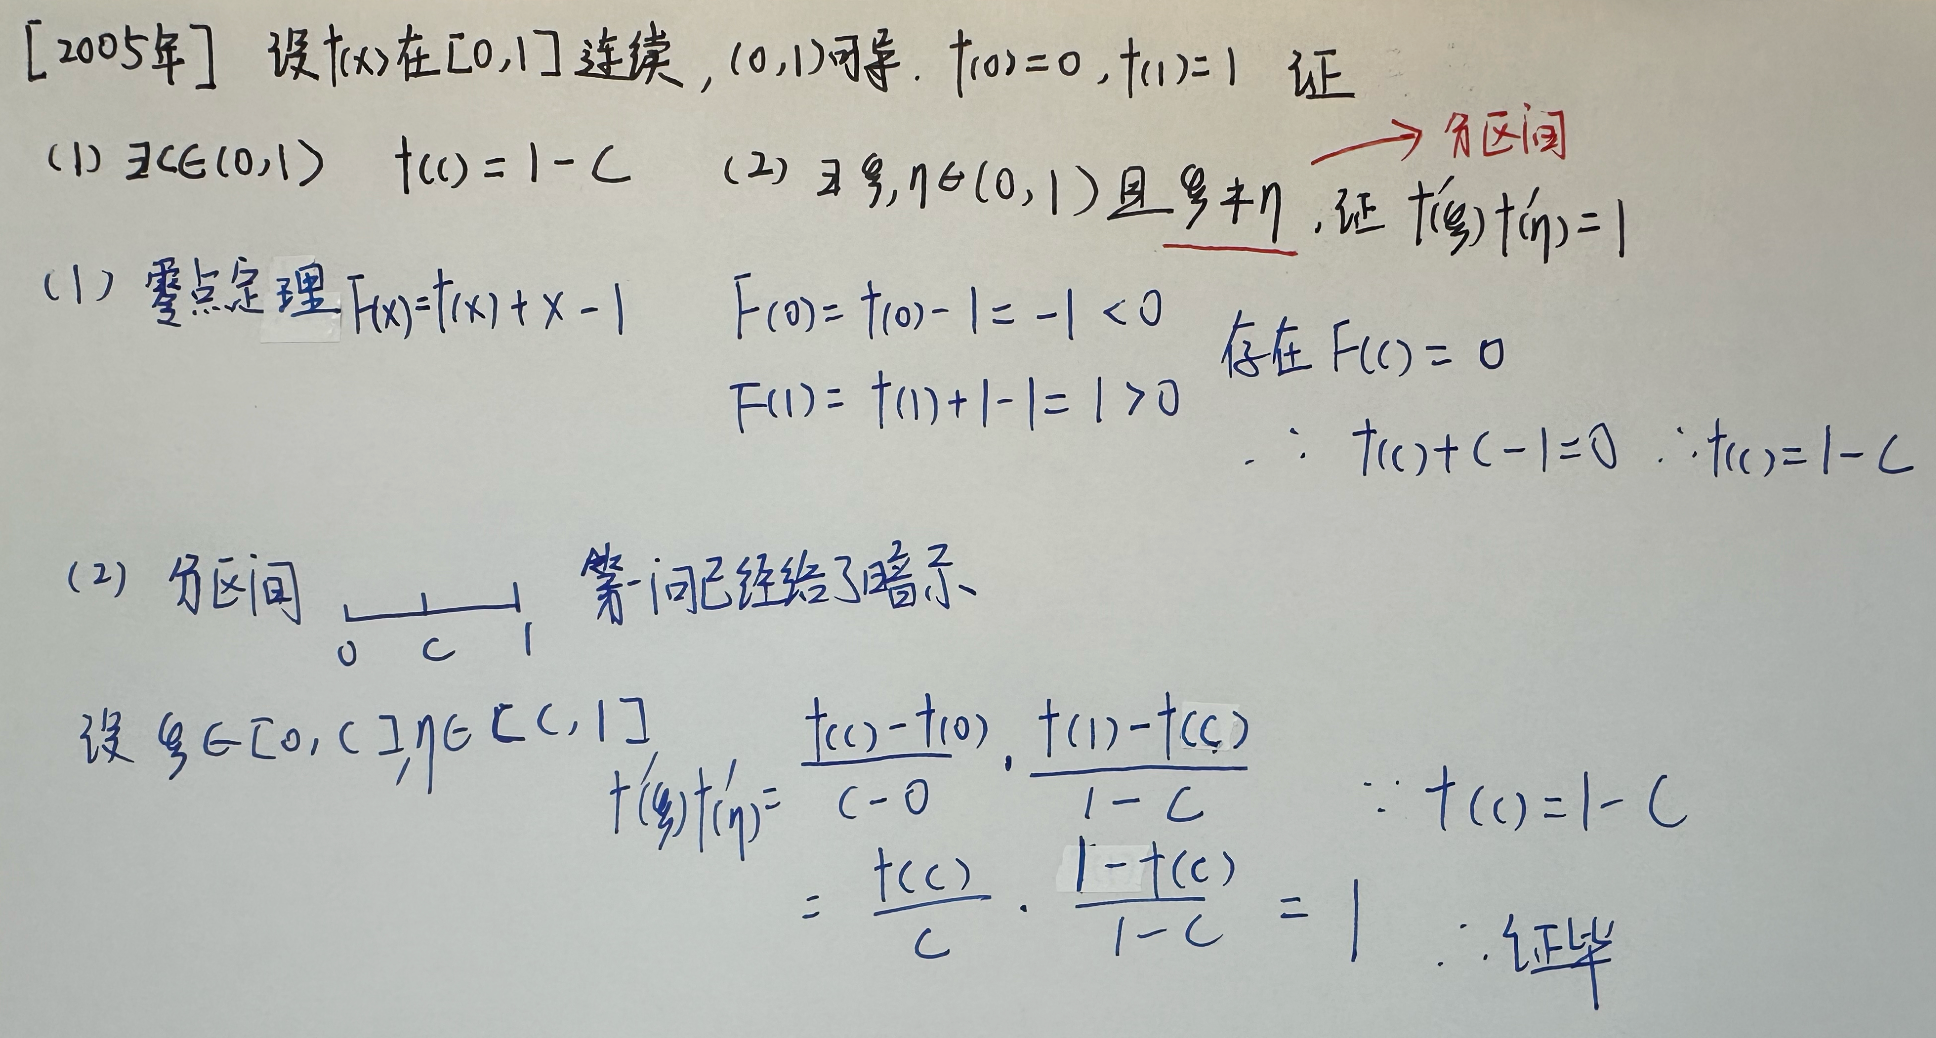 [2005年] 设f(x)在[0,1]连续,(0,1)可导. f(0)=0,f(1)=1 证
→分区间
(1) ∃C∈(0,1) f(c)=1-C (2) ∃ξ,η∈(0,1)且ξ≠η,证 f'(ξ)f'(η)=1
(1) 零点定理 F(x)=f(x)+x-1 F(0)=f(0)-1=-1<0
存在 F(c)=0
F(1)=f(1)+1-1=1>0
∴ f(c)+c-1=0 ∴f(c)=1-C
(2) 分区间 第一问已经给了暗示
0 C 1
设 ξ∈[0,C],η∈[C,1]
f'(ξ)f'(η)= (f(c)-f(0))/(c-0) · (f(1)-f(c))/(1-C) ∵ f(c)=1-C
= f(c)/C · (1-f(c))/(1-C) = 1 ∴证毕